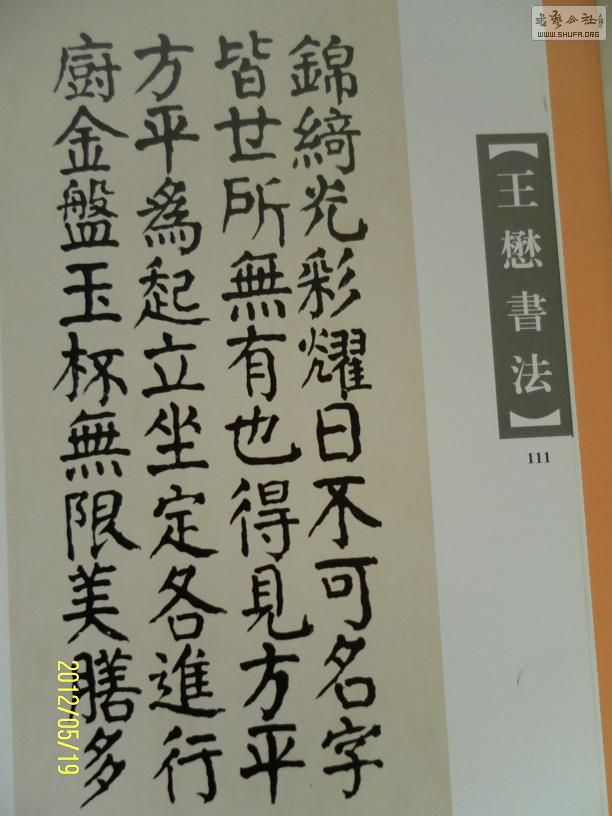 錦綺光彩耀日不可名字
皆世所無有也得見方平
方平為起立坐定各進行
廚金盤玉杯無限美膳多
【王懋書法】
111
書藝公社
WWW.SHUFA.ORG
2012/05/19